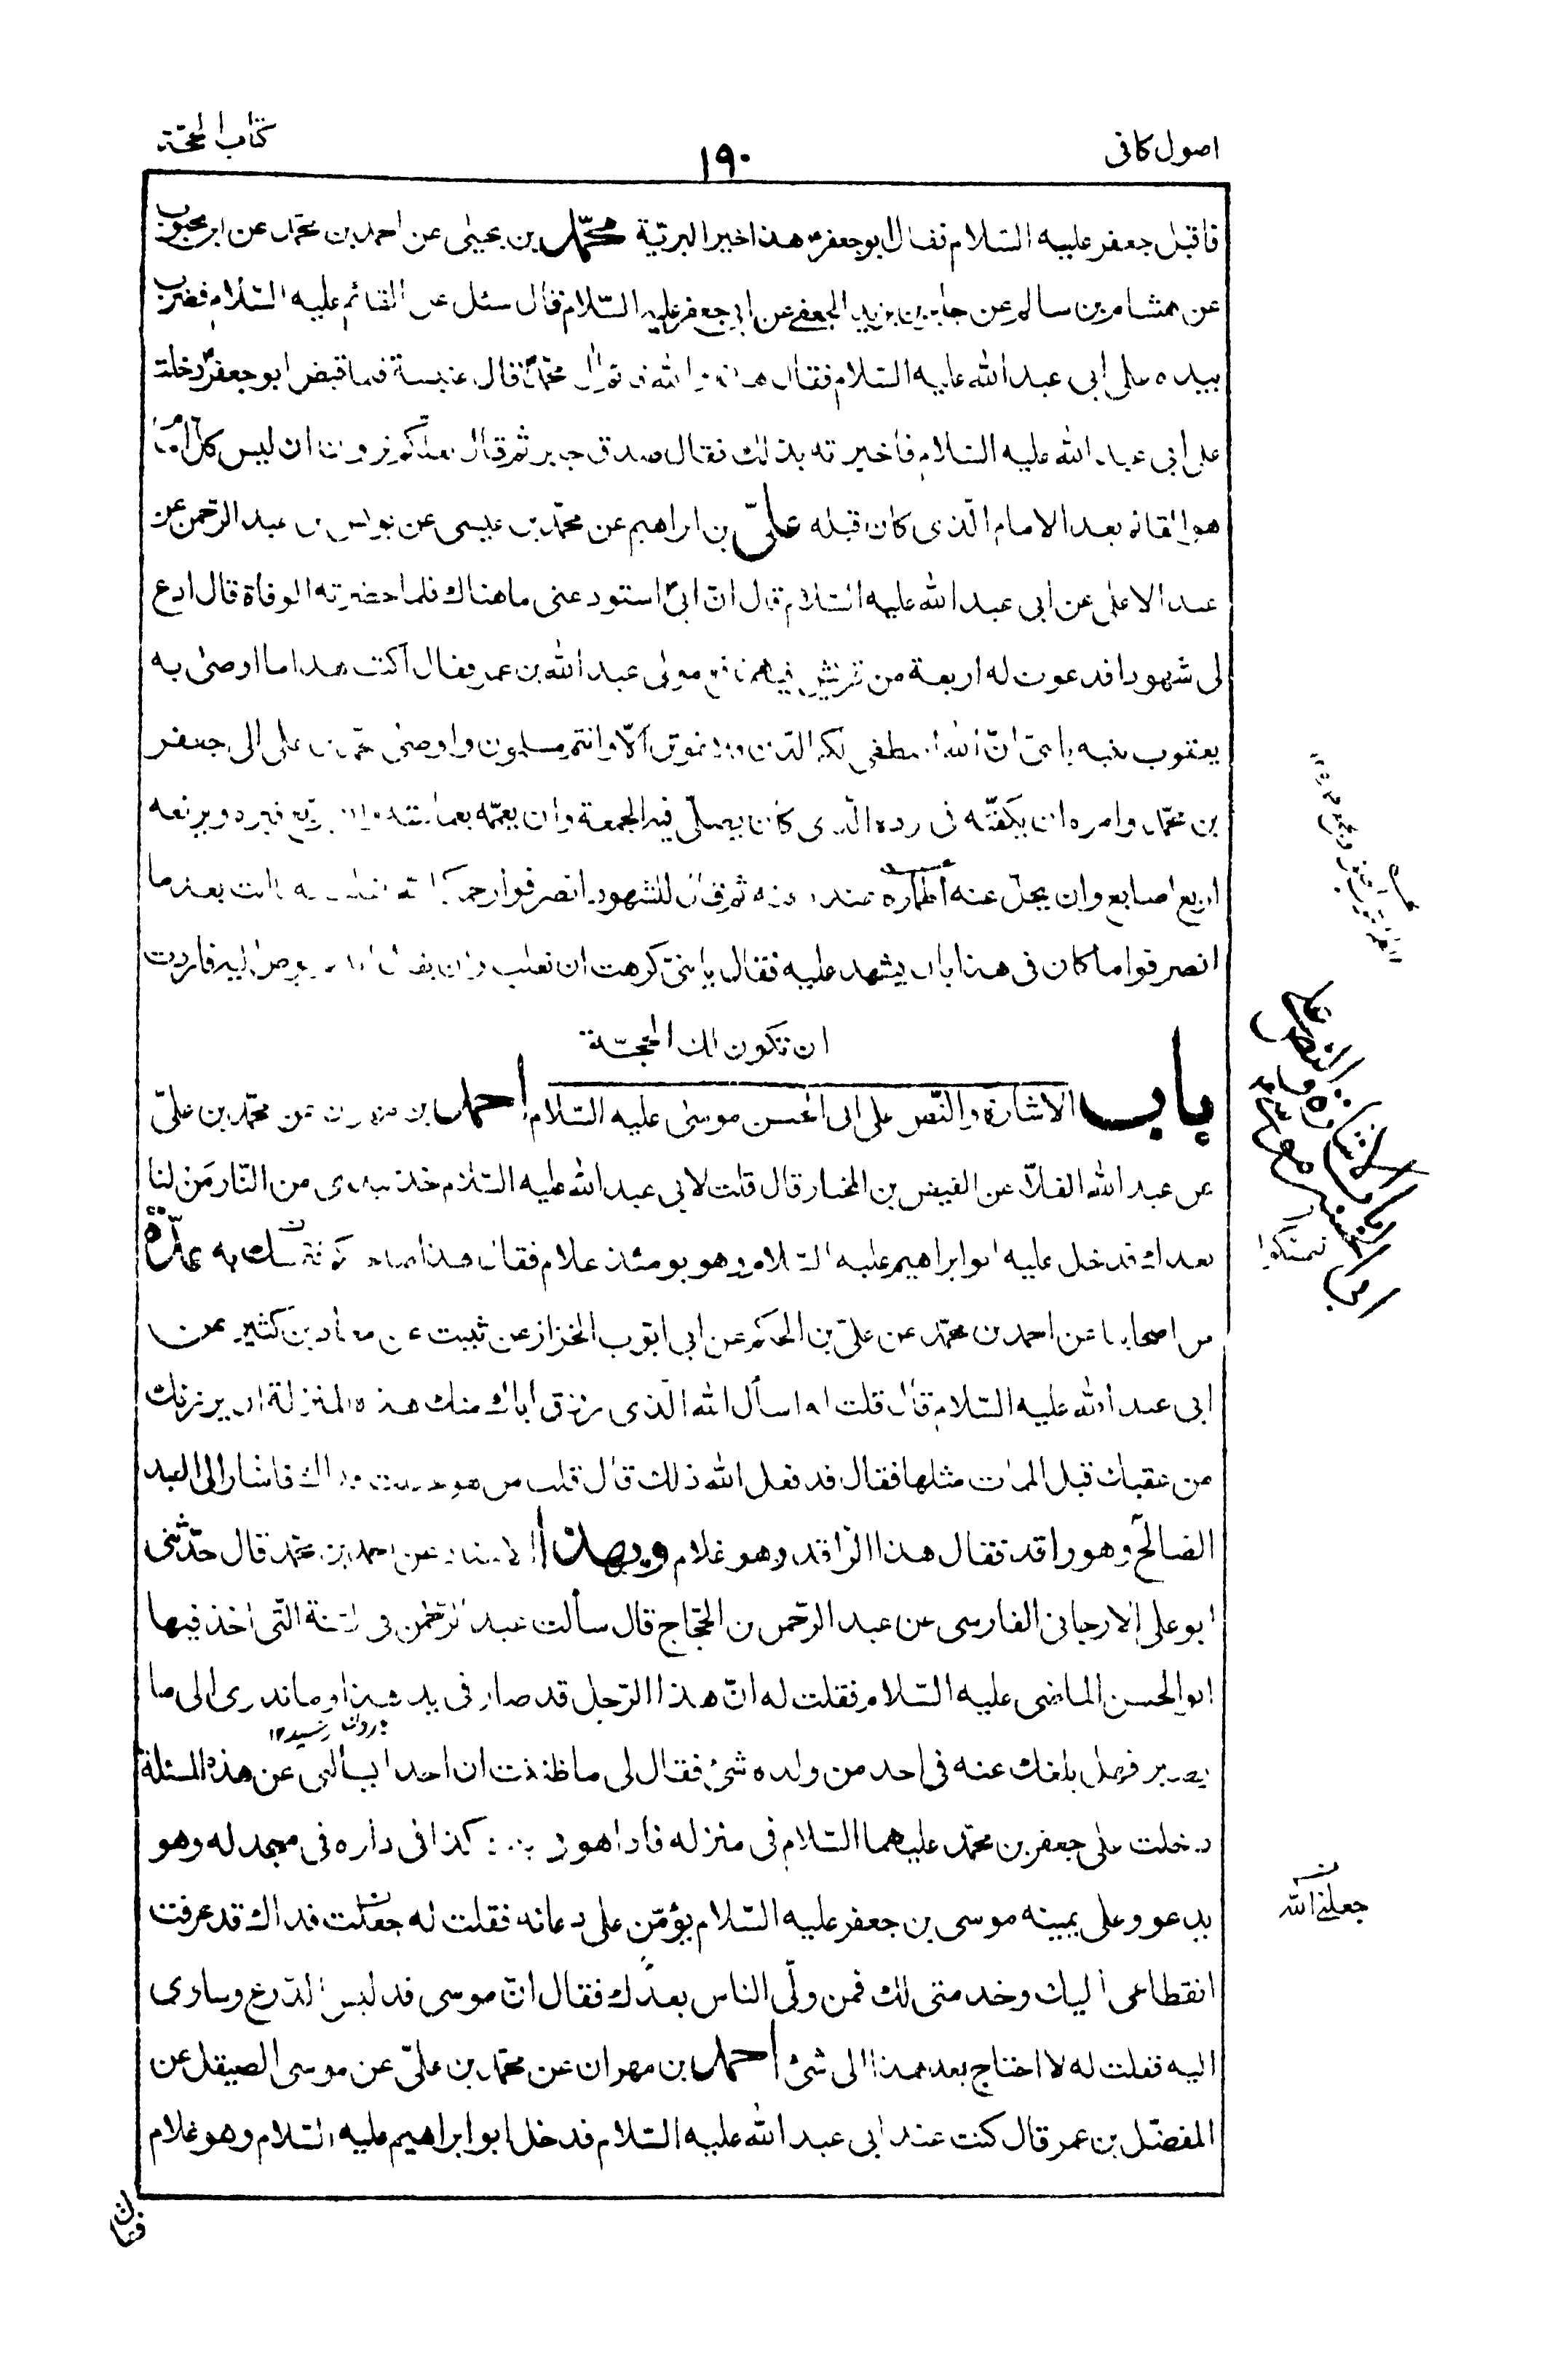 اصول كافى
١٩٠
كتاب الحجّة
فاقبل جعفر عليه السّلام فقال ابو جعفرؑ هذا خير البريّة محمّد بن يحيى عن احمد بن محمّد عن ابن محبوب
عن هشام بن سالم عن جابر بن يزيد الجعفى عن ابى جعفر عليه السّلام قال سئل عن القائم عليه السّلام فضرب
بيده على ابى عبد الله عليه السّلام فقال هذا والله قال عنبسة فلما قبض ابو جعفرؑ دخلت
على ابى عبد الله عليه السّلام فاخبرته بذلك فقال صدق جابر ثم قال لعلّكم ترون ان ليس كل امام
هو القائم بعد الامام الّذى كان قبله علىّ بن ابراهيم عن محمّد بن عيسى عن يونس بن عبد الرّحمن عن
عبد الاعلى عن ابى عبد الله عليه السّلام قال انّ ابىؑ استودعنى ما هناك فلما حضرته الوفاة قال ادع
لى شهودا فدعوت له اربعة من قريش فيهم نافع مولى عبد الله بن عمر فقال اكتب هذا ما اوصى به
يعقوب بنيه يا بنىّ انّ الله اصطفى لكم الدّين فلا تموتنّ الّا وانتم مسلمون واوصى محمّد بن على الى جعفر
بن محمّد وامره ان يكفّنه فى برده الّذى كان يصلّى فيه الجمعة وان يعمّمه بعمامته وان يربّع قبره ويرفعه
اربع اصابع وان يحلّ عنه اطماره عند دفنه ثم قال للشهود انصرفوا رحمكم الله فقلت له يا ابت بعد ما
انصرفوا ما كان فى هذا بان يشهد عليه فقال يا بنىّ كرهت ان تغلب وان يقال انه لم يوص اليه فاردت
ان تكون لك الحجّة
باب الاشارة والنّص على ابى الحسن موسى عليه السّلام احمد بن مهران عن محمّد بن علىّ
عن عبد الله القلّا عن الفيض بن المختار قال قلت لابى عبد الله عليه السّلام خذ بيدى من النّار مَن لنا
بعدك فدخل عليه ابو ابراهيم عليه السّلام وهو يومئذ غلام فقال هذا صاحبكم فتمسّك به عدّة
من اصحابنا عن احمد بن محمّد عن علىّ بن الحكم عن ابى ايّوب الخزاز عن ثبيت عن معاذ بن كثير عن
ابى عبد الله عليه السّلام قال قلت له اسأل الله الّذى رزق اباك منك هذه المنزلة ان يرزقك
من عقبك قبل الممات مثلها فقال قد فعل الله ذلك قال قلت من هو جعلت فداك فاشار الى العبد
الصالحؑ وهو راقد فقال هذا الرّاقد وهو غلام وبهذا الاسناد عن احمد بن محمّد قال حدّثنى
ابو على الارجانى الفارسى عن عبد الرّحمن بن الحجّاج قال سألت عبد الرّحمن فى السّنة الّتى اخذ فيها
ابو الحسن الماضى عليه السّلام فقلت له انّ هذا الرّجل قد صار فى يد هذا وما ندرى الى ما
يصير فهل بلغك عنه فى احد من ولده شئ فقال لى ما ظننت ان احدا يسألنى عن هذه المسئلة
دخلت على جعفر بن محمّد عليهما السّلام فى منزله فاذا هو فى بيت كذا فى داره فى مسجد له وهو
يدعو وعلى يمينه موسى بن جعفر عليه السّلام يؤمّن على دعائه فقلت له جعلت فداك قد عرفت
انقطاعى اليك وخدمتى لك فمن ولّى الناس بعدك فقال انّ موسى قد لبس الدّرع وساوى
اليه فقلت له لا احتاج بعد هذا الى شئ احمد بن مهران عن محمّد بن علىّ عن موسى الصيقل عن
المفضّل بن عمر قال كنت عند ابى عبد الله عليه السّلام فدخل ابو ابراهيم عليه السّلام وهو غلام
فتمسّكوا
جعلنى الله
فقال